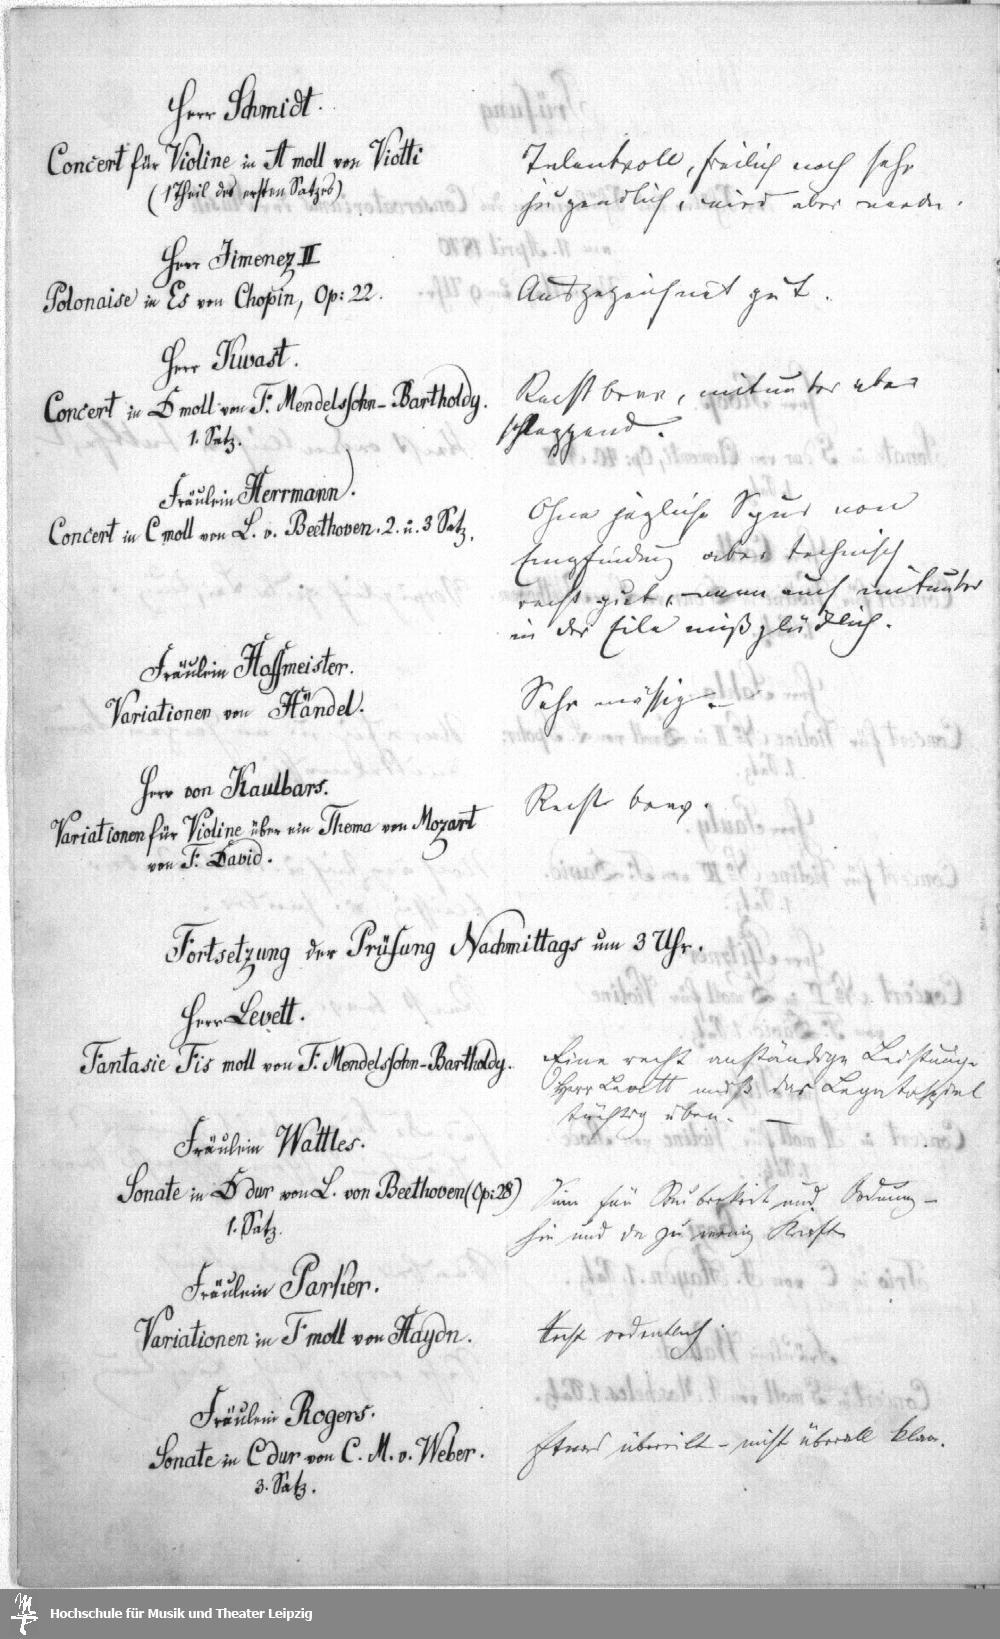 Herr Schmidt.
Concert für Violine in A moll von Viotti
(1 Theil des ersten Satzes)
Talentvoll, freilich noch sehr
jugendlich, wird aber werden.
Herr Jimenez II
Polonaise in Es von Chopin, Op: 22.
Ausgezeichnet gut.
Herr Kwast.
Concert in D moll von F. Mendelssohn-Bartholdy.
1. Satz.
Recht brav, mitunter etwas
schleppend.
Fräulein Herrmann.
Concert in C moll von L. v. Beethoven. 2. u. 3 Satz.
Ohne jegliche Spur von
Empfindung aber technisch
recht gut, wenn auch mitunter
in der Eile mißglücklich.
Fräulein Hoffmeister.
Variationen von Händel.
Sehr mässig.
Herr von Kaulbars.
Variationen für Violine über ein Thema von Mozart
von F. David.
Recht brav.
Fortsetzung der Prüfung Nachmittags um 3 Uhr.
Herr Levett.
Fantasie Fis moll von F. Mendelssohn-Bartholdy.
Eine recht anständige Leistung.
Herr Levett muß das Legatospiel
tüchtig üben. —
Fräulein Wattles.
Sonate in D dur von L. von Beethoven (Op: 28)
1. Satz.
Sinn für Sauberkeit und Ordnung –
hie und da zu wenig Kraft
Fräulein Parker.
Variationen in F moll von Haydn.
Recht ordentlich.
Fräulein Rogers.
Sonate in C dur von C. M. v. Weber.
3. Satz.
Etwas übereilt – nicht überall klar.
Hochschule für Musik und Theater Leipzig